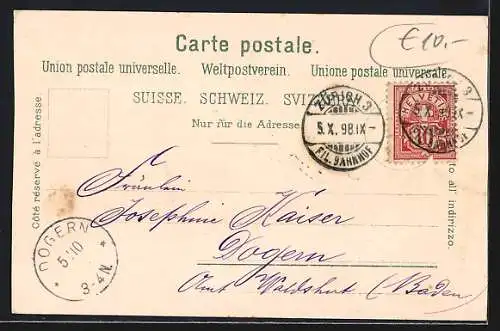 €10.-
Carte postale.
Union postale universelle. Weltpostverein. Unione postale universale.
SUISSE. SCHWEIZ. SVIZ
Nur für die Adresse
Côté réservé à l'adresse
ZÜRICH 3
5.X.98.IX-
FIL. BAHNHOF
HELVETIA
10
3
IX-
lo all' indirizzo.
Fräulein
Josephine Kaiser
Dogern
Amt Waldshut (Baden)
DOGERN
5.10
3-4N.